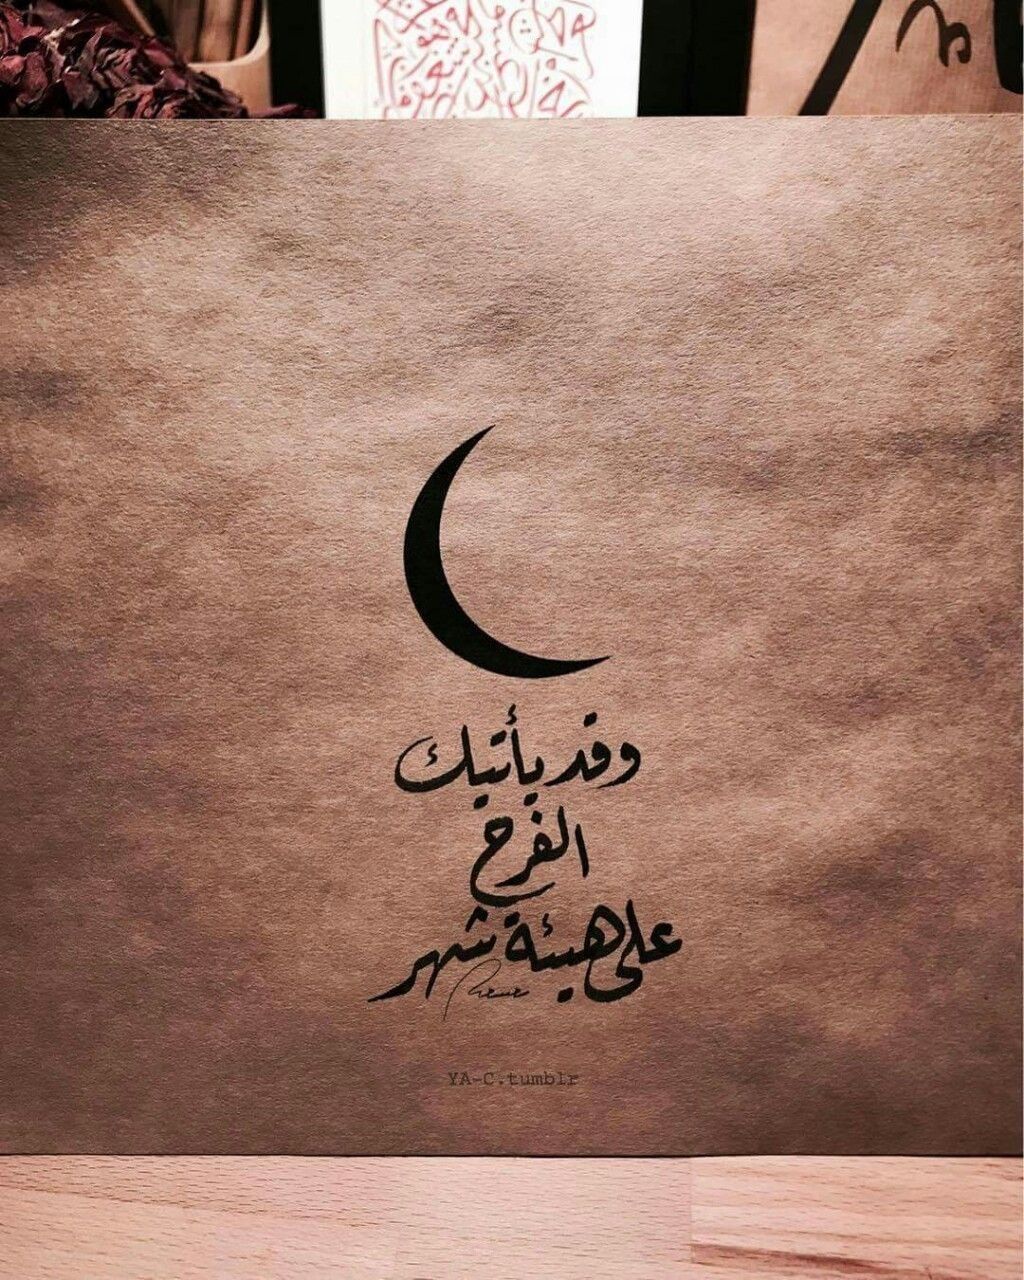 وقد يأتيك
الفرج
على هيئة شهر
YA-C.tumblr